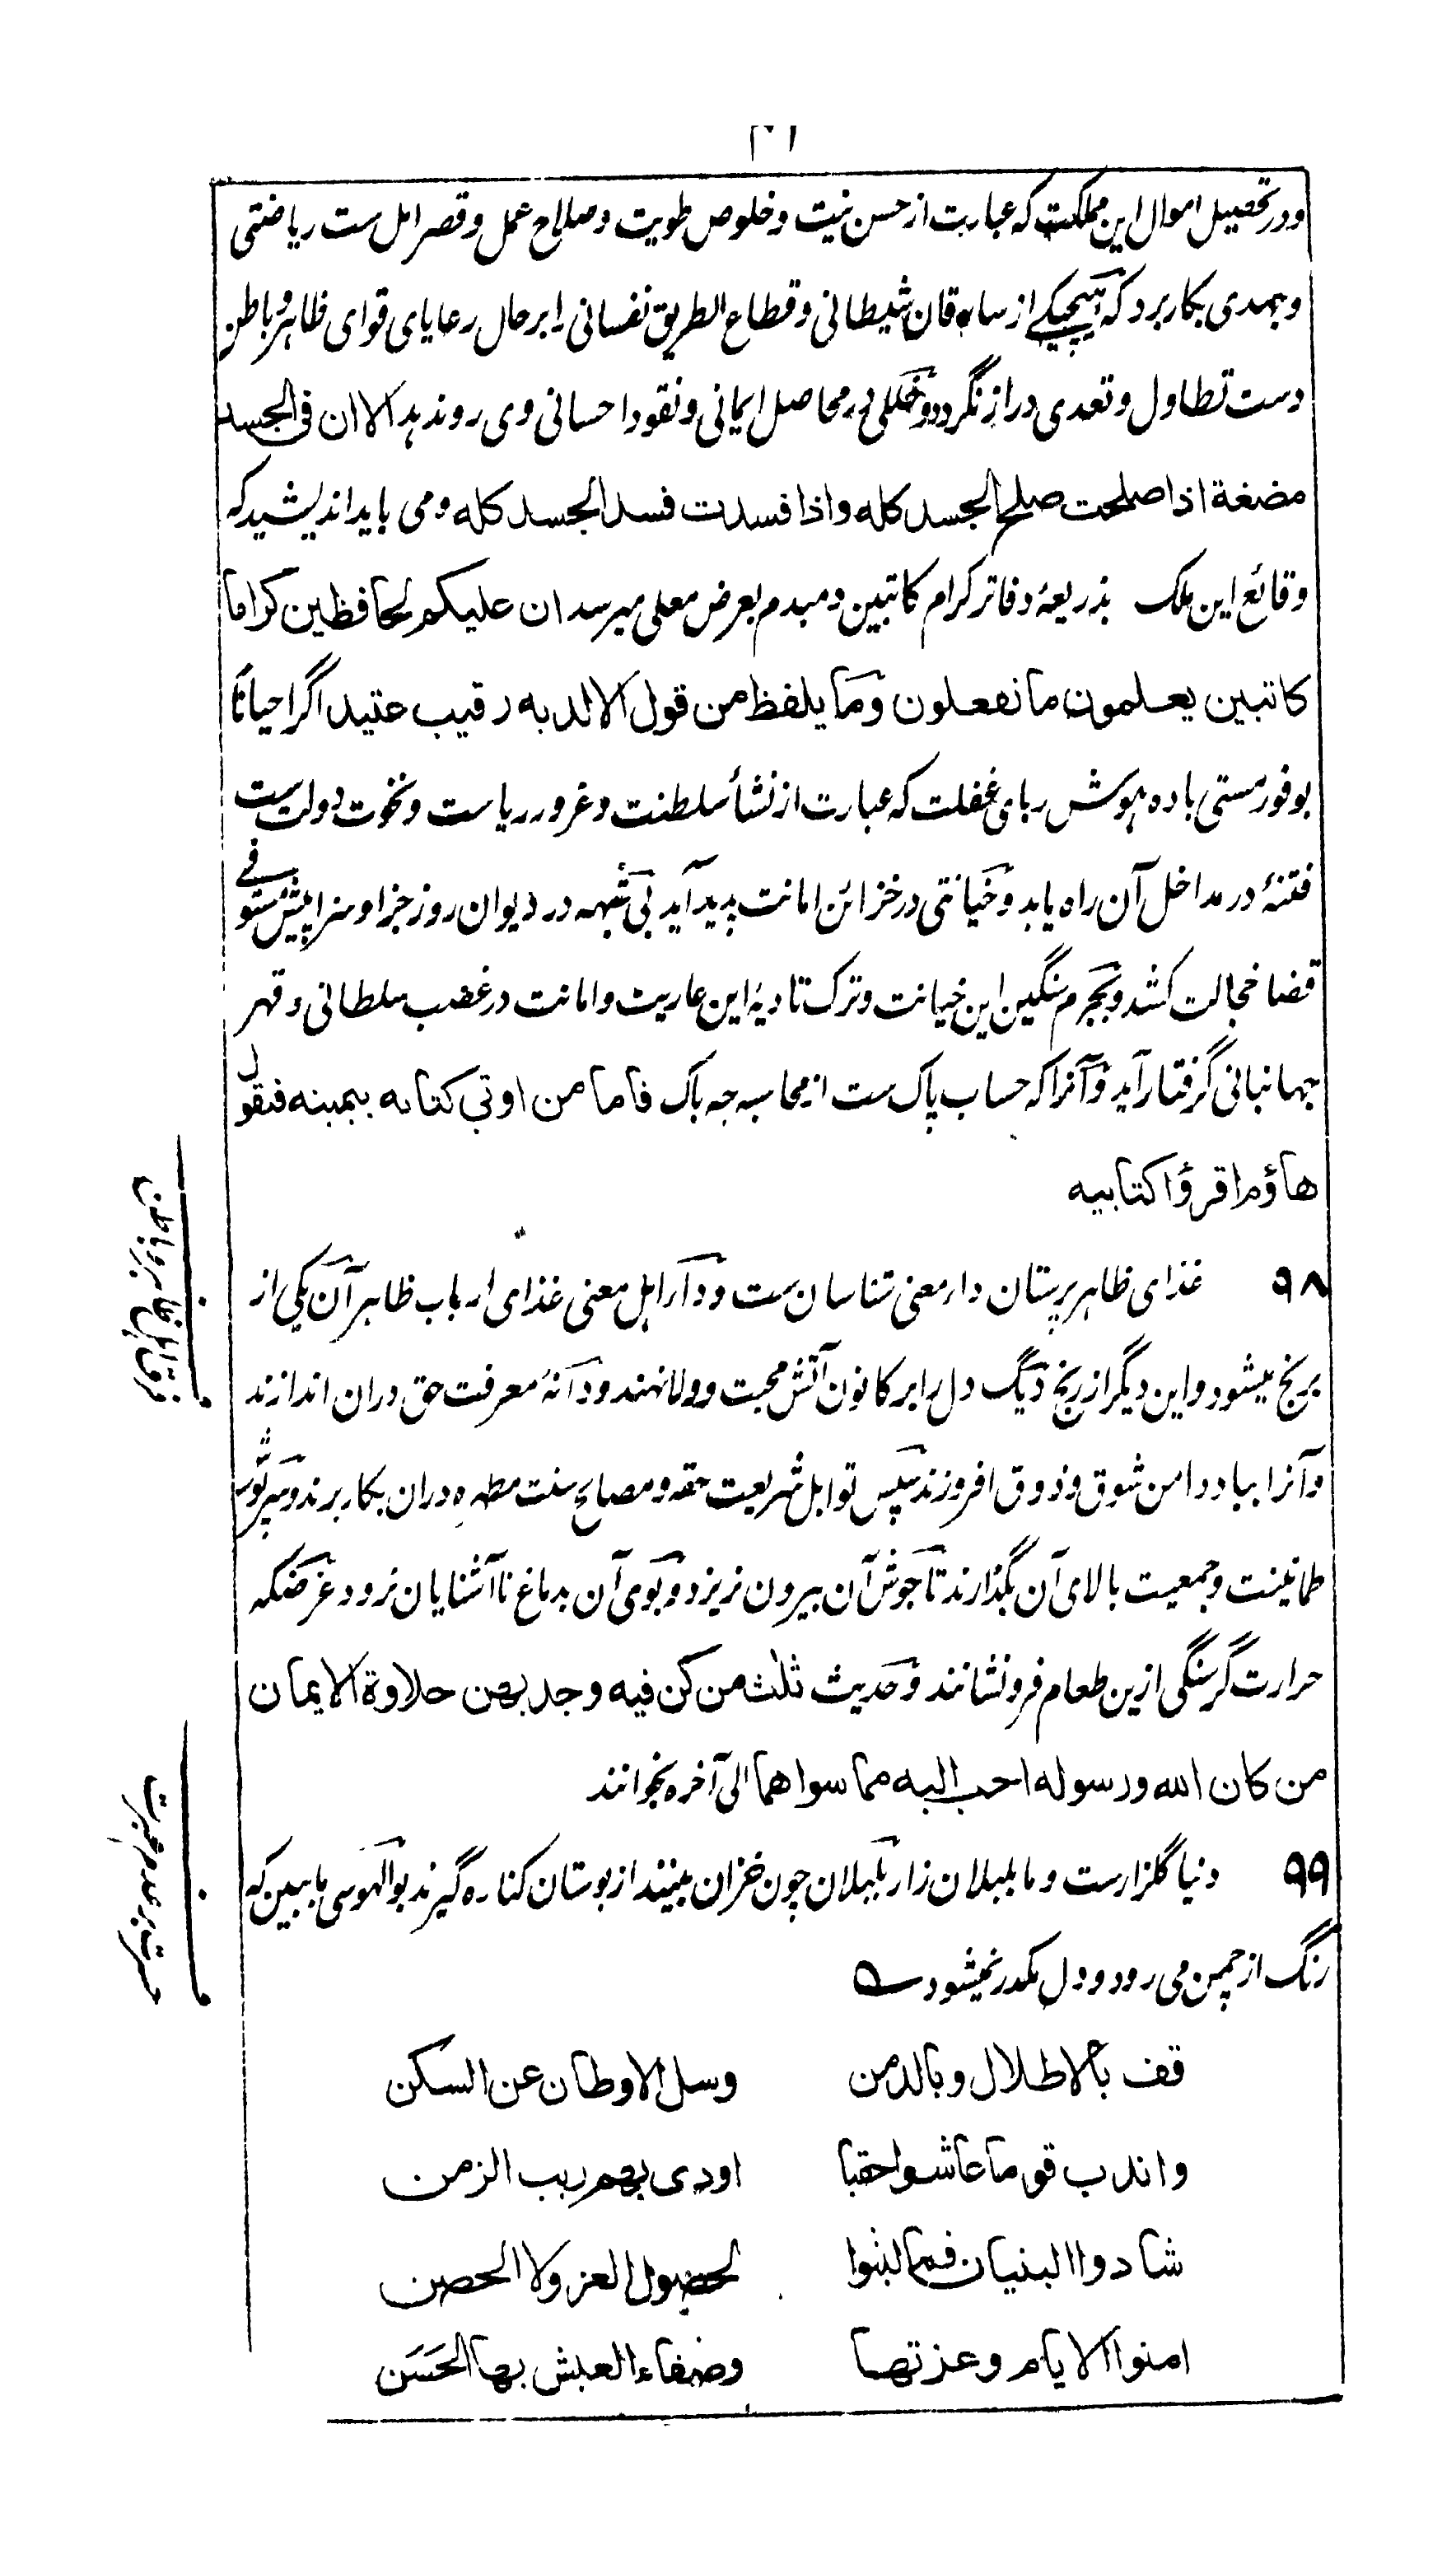 و در تحصیل اموال این مملکت که عبارت از حسن نیت و خلوص طویت و صلاح عمل و قصر امل ست ریاضتی
و جهدی بکار برد که هیچیکے از سارقان شیطانی و قطاع الطریق نفسانی را بر حال رعایای قوای ظاهر و باطن
دست تطاول و تعدی دراز نگردد و خللی در محاصل ایمانی و نقود احسانی وی روندهد الا ان فی الجسد
مضغة اذا صلحت صلح الجسد کله و اذا فسدت فسد الجسد کله و می باید اندیشید که
وقائع این ملک بذریعهٔ دفاتر کرام کاتبین دمبدم بعرض معلی میرسد ان علیکم لحافظین کراما
کاتبین یعلمون ما تفعلون و ما یلفظ من قول الا لدیه رقیب عتید اگر احیاناً
بوفور مستی باده هوش ربای غفلت که عبارت از نشأ سلطنت و غرور ریاست و نخوت دولت ست
فتنهٔ در مداخل آن راه یابد و خیانتی در خزائن امانت پدید آید بی شبهه در دیوان روز جزا و سزا پیش مستوفے
قضا خجالت کشد و بجرم سنگین این خیانت و ترک تادیهٔ این عاریت و امانت در غضب سلطانی و قهر
جهانبانی گرفتار آید و آنرا که حساب پاک ست از محاسبه چه باک فاما من اوتی کتابه بیمینه فیقول
هاؤم اقرؤا کتابیه
۹۸ غذای ظاهر پرستان داء معنی شناسان ست و داء اهل معنی غذای ارباب ظاهر آن یکی از
برنج میشود و این دیگر از رنج دیگ دل را بر کانون آتش محبت و ولا نهند و دانهٔ معرفت حق دران اندازند
و آنرا بباد دامن شوق و ذوق افروزند سپس توابل شریعت حقه و مصالح سنت مطهره دران بکار برند و سرپوش
طمانینت و جمعیت بالای آن بگذارند تا جوش آن بیرون نریزد و بوی آن بدماغ ناآشنایان نرود غرضکه
حرارت گرسنگی ازین طعام فرو نشانند و حدیث ثلث من کن فیه وجد بهن حلاوة الایمان
من کان الله و رسوله احب الیه مما سواهما الی آخره بخوانند
فرق اهل ظاهر و باطن
۹۹ دنیا گلزارست و ما بلبلان زار بلبلان چون خزان بینند از بوستان کناره گیرند بوالهوسی ما ببین که
رنگ از چمن می رود و دل مکدر نمیشود ے
حسرت بر عدم عبرت
قف بالاطلال و بالدمن وسل الاوطان عن السکن
واندب قوما عاشوا حقبا اودی بهم ریب الزمن
شادوا البنیان فما لبثوا لحصول العز ولا الحصن
امنوا الایام و عزتها وصفاء العیش بها الحَسَن